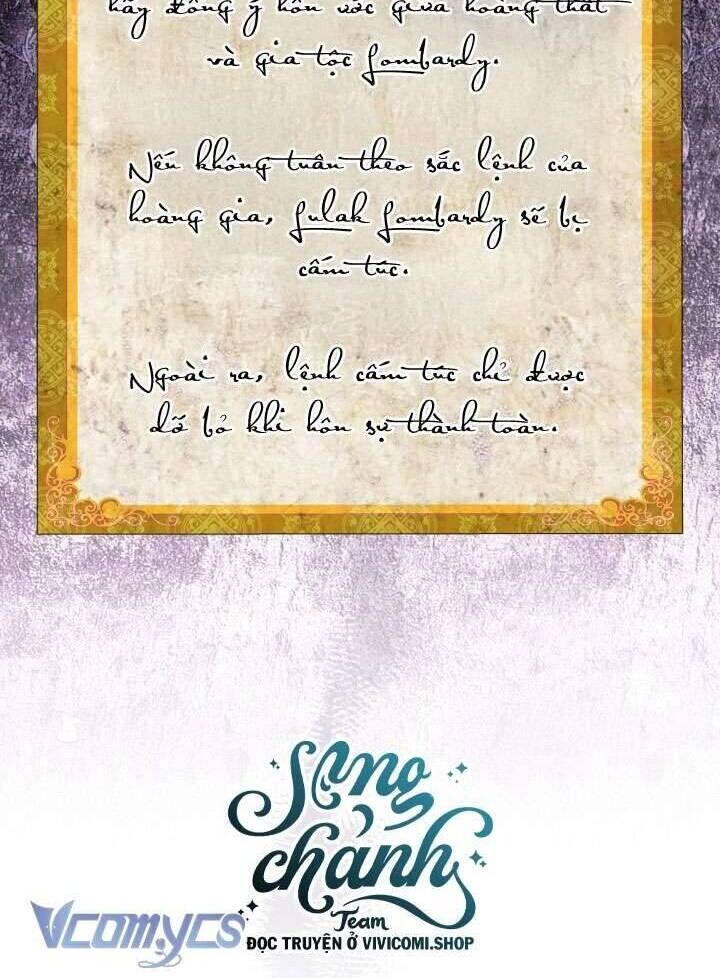 hãy đồng ý hôn ước giữa hoàng thất
và gia tộc Lombardy.
Nếu không tuân theo sắc lệnh của
hoàng gia, Lulak Lombardy sẽ bị
cấm túc.
Ngoài ra, lệnh cấm túc chỉ được
dỡ bỏ khi hôn sự thành toàn.
Sang
chảnh
Team
Vcomycs
ĐỌC TRUYỆN Ở VIVICOMI.SHOP